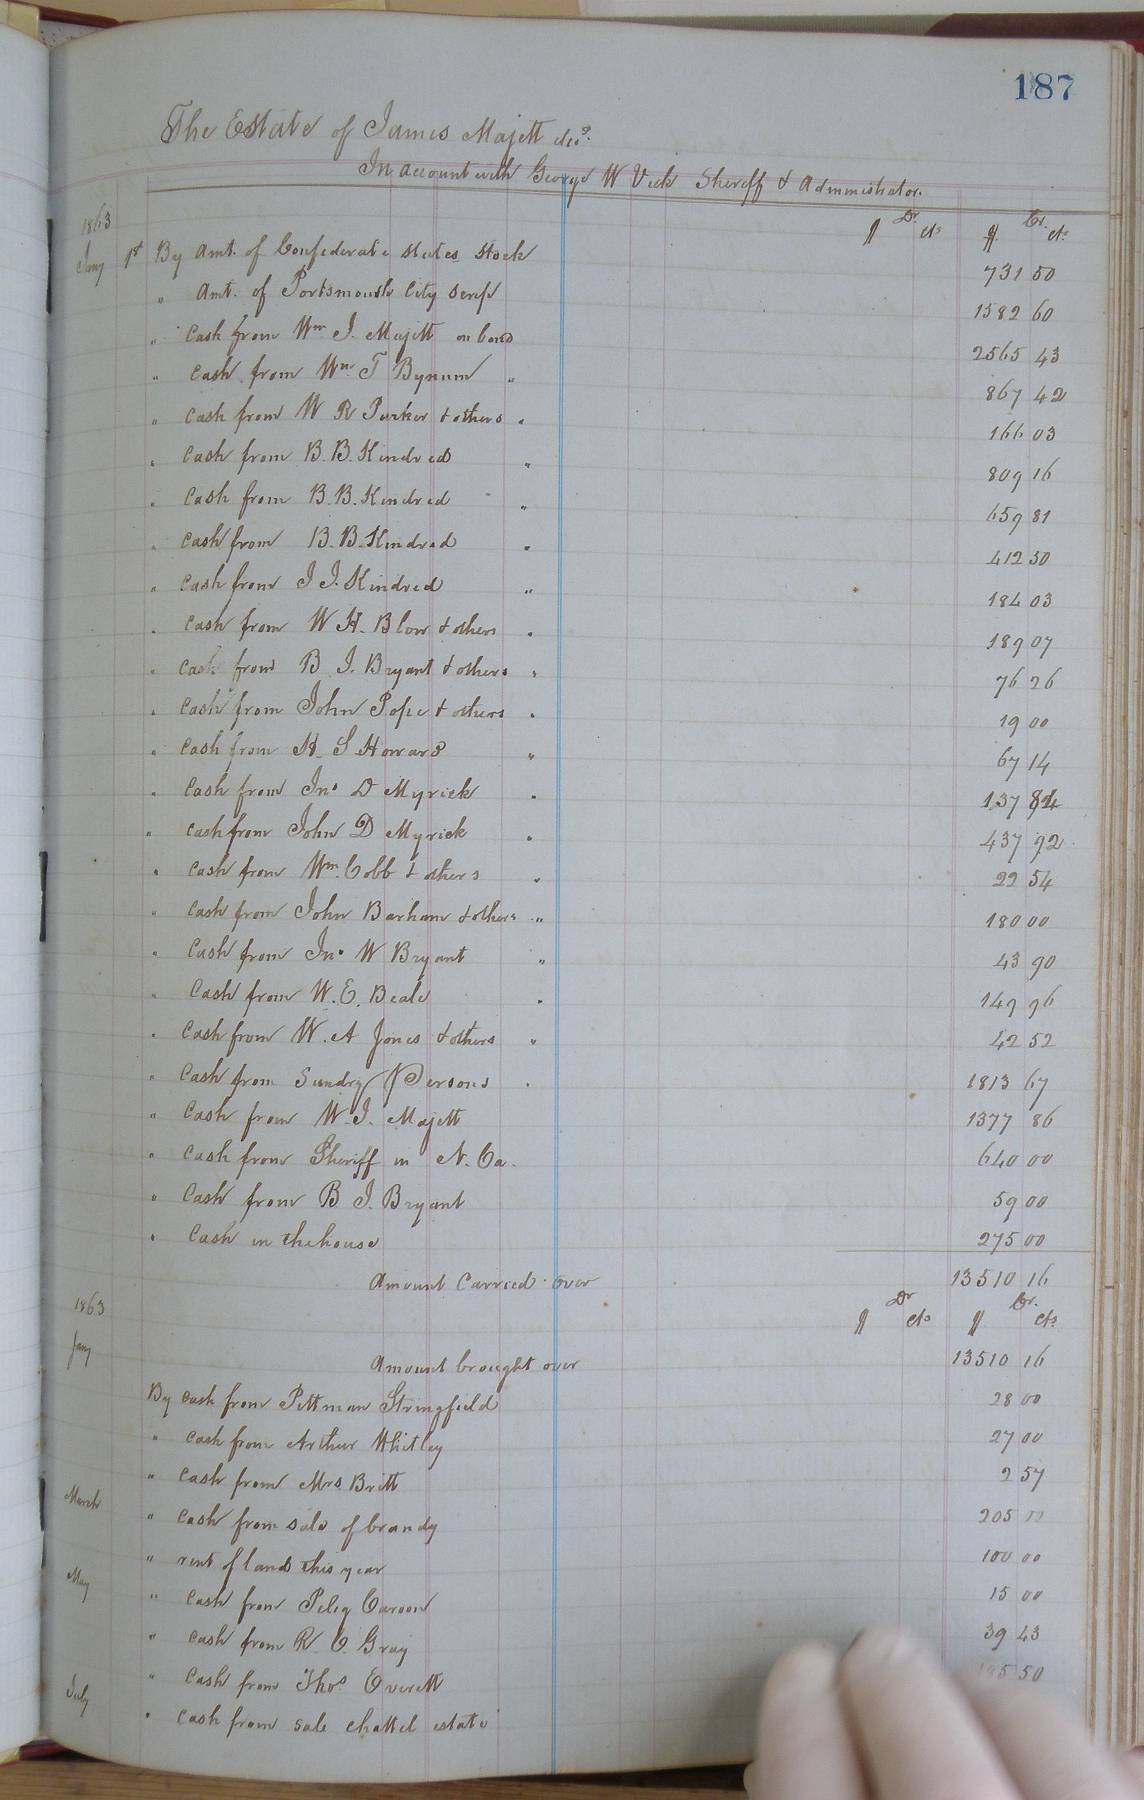 187
The Estate of James Majett dec'd.
In account with George W Vick Sheriff & Administrator.
1863 Dr. Cr.
$ cts $ cts
Jany 1st By Amt. of Confederate States Stock 731 50
" Amt. of Portsmouth City Scrip 1582 60
" Cash from Wm J. Majett on bond 2565 43
" Cash from Wm T Bynum " 867 42
" Cash from W R Parker & others " 166 03
" Cash from B. B. Kindred " 809 16
" Cash from B. B. Kindred " 659 81
" Cash from B. B. Kindred " 412 50
" Cash from J J. Kindred " 184 03
" Cash from W H. Blow & others " 189 07
" Cash from B J. Bryant & others " 76 26
" Cash from John Pope & others " 19 00
" Cash from H. S Howard " 67 14
" Cash from Jno D Myrick " 137
" Cash from John D Myrick " 437 92
" Cash from Wm. Cobb & others " 22 54
" Cash from John Barham & others " 180 00
" Cash from Jno W Bryant " 43 90
" Cash from W. E. Beale " 149 96
" Cash from W. A Jones & others " 42 52
" Cash from Sundry Persons " 1813 67
" Cash from W. J. Majett 1377 86
" Cash from Sheriff in N. Ca. 640 00
" Cash from B J. Bryant 59 00
" Cash in the house 275 00
Amount Carried over 13510 16
1863 Dr Cr.
$ cts $ cts
Jany Amount brought over 13510 16
By Cash from Pittman Stringfield 28 00
" Cash from Arthur Whitley 27 00
" Cash from Mrs Britt 2 57
March " Cash from sale of brandy 205
" rent of land this year 100 00
May " Cash from Peleg Carson 15 00
" Cash from R. C. Gray 39 43
" Cash from Thos Everett 50
July " Cash from sale chattel estate